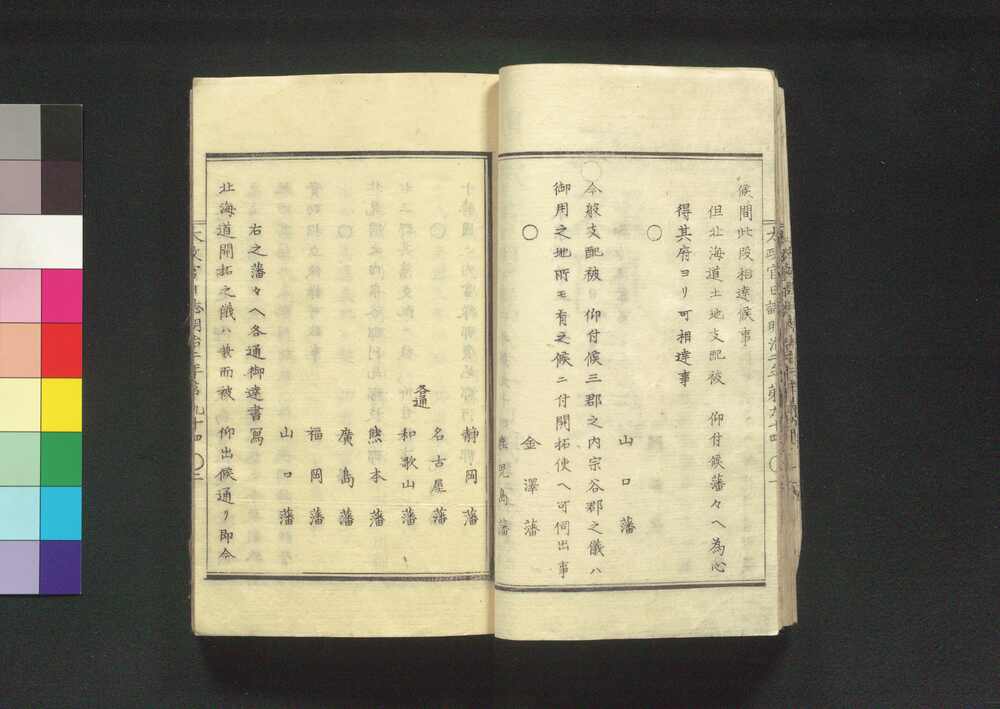 候間此段相達候事
但北海道土地支配被　仰付候藩々ヘ為心
得其府ヨリ可相達事
○
山口藩
今般支配被　仰付候三郡之内宗谷郡之儀ハ
御用之地所モ有之候ニ付開拓使ヘ可伺出事
○
金澤藩
鹿児島藩
静岡藩
名古屋藩
各通
和歌山藩
熊本藩
廣島藩
福岡藩
山口藩
右之藩々ヘ各通御達書寫
北海道開拓之儀ハ兼而被　仰出候通リ即今
太政官日誌明治二年第九十四　○二